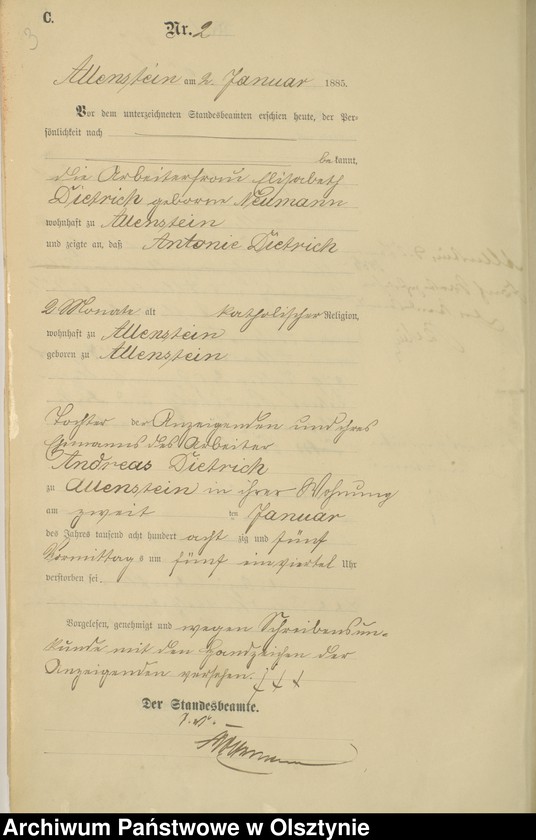 C.
3
Nr. 2
Allenstein am 2. Januar 1885.
Vor dem unterzeichneten Standesbeamten erschien heute, der Per-
sönlichkeit nach
bekannt,
die Arbeiterfrau Elisabeth
Dietrich geborne Neumann
wohnhaft zu Allenstein
und zeigte an, daß Antonie Dietrich
2 Monate alt katholischer Religion,
wohnhaft zu Allenstein
geboren zu Allenstein
Tochter der Anzeigenden und ihres
Ehemanns des Arbeiter
Andreas Dietrich
zu Allenstein in ihrer Wohnung
am zweit ten Januar
des Jahres tausend acht hundert acht zig und fünf
Vormittags um fünf einviertel Uhr
verstorben sei.
Vorgelesen, genehmigt und wegen Schreibensun-
kunde mit den Handzeichen der
Anzeigenden versehen. † † †
Der Standesbeamte.
J. V.
Archiwum Państwowe w Olsztynie